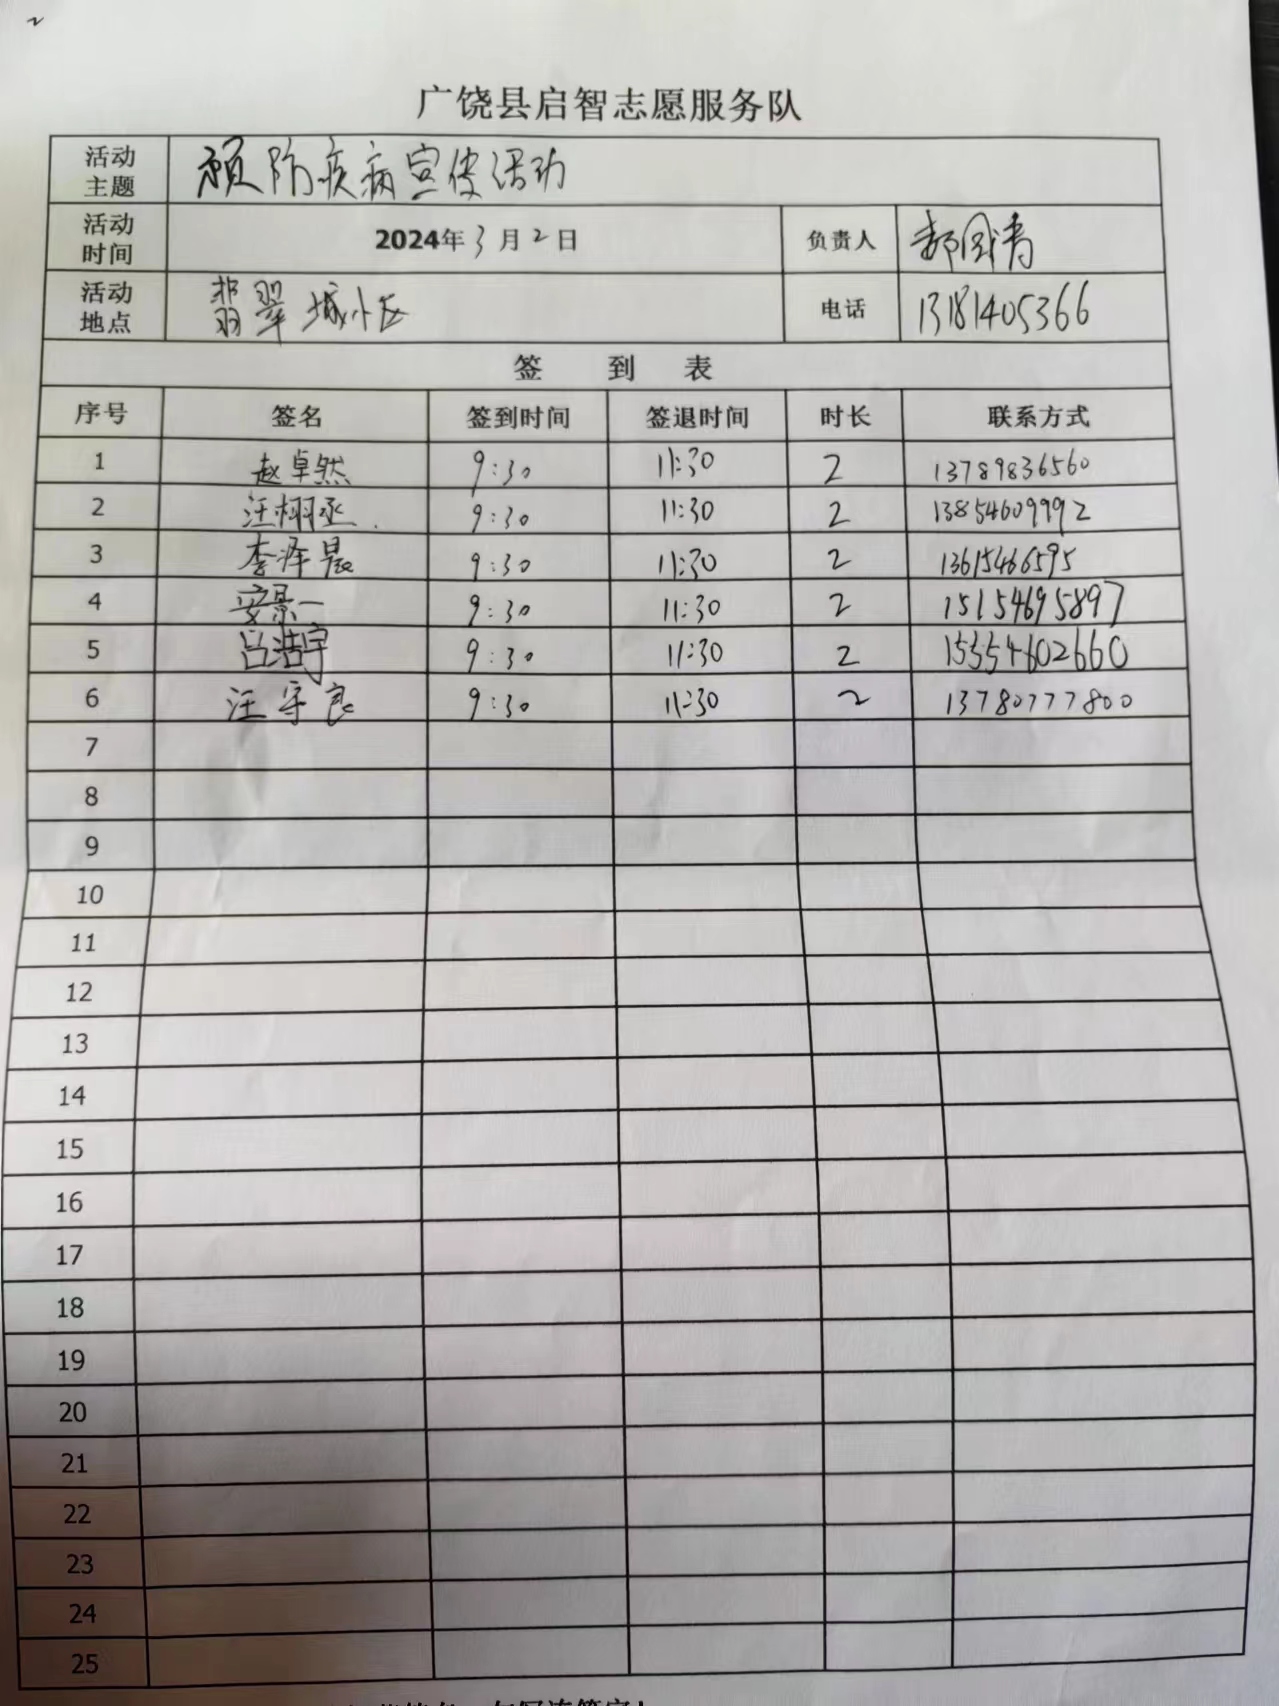 广饶县启智志愿服务队
活动主题 预防疾病宣传活动
活动时间 2024年3月2日 负责人 郝国涛
活动地点 翡翠城小区 电话 13181405366
签 到 表
序号 签名 签到时间 签退时间 时长 联系方式
1 赵卓然 9:30 11:30 2 13789836560
2 汪栩丞 9:30 11:30 2 13854609992
3 李泽晨 9:30 11:30 2 13615466595
4 安景一 9:30 11:30 2 15154695897
5 吕浩宇 9:30 11:30 2 15554602660
6 汪宇良 9:30 11:30 2 13780777800
7
8
9
10
11
12
13
14
15
16
17
18
19
20
21
22
23
24
25